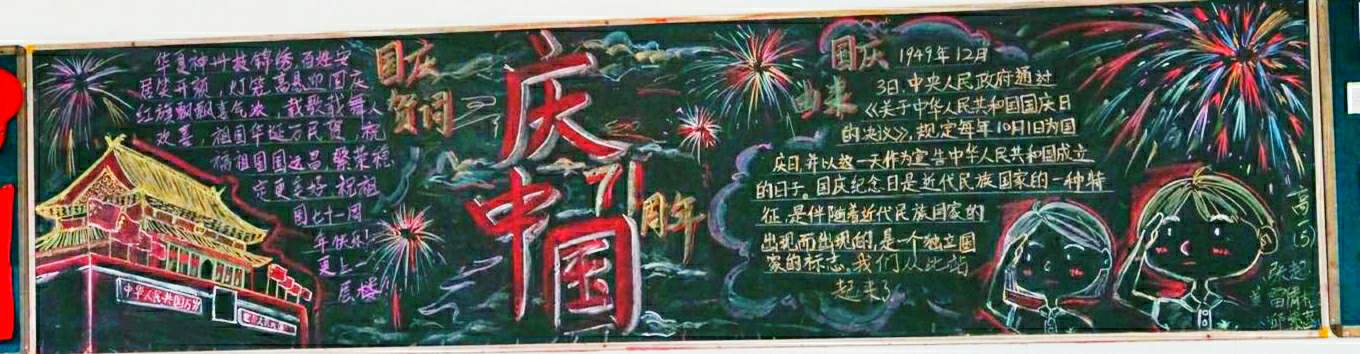 国庆
贺词
华夏神州披锦绣 百姓安
居笑开颜，灯笼高悬迎国庆
红旗飘飘喜气浓，载歌载舞人
改善，祖国华诞万民贺，祝
福祖国国运昌 繁荣稳
定更美好 祝祖
国七十一周
年快乐！
更上一
层楼！
中华人民共和国万岁
庆
中
国
71
周年
国庆
由来
1949年12月
3日，中央人民政府通过
《关于中华人民共和国国庆日
的决议》，规定每年10月1日为国
庆日，并以这一天作为宣告中华人民共和国成立
的日子。国庆纪念日是近代民族国家的一种特
征，是伴随着近代民族国家的
出现而出现的，是一个独立国
家的标志，我们从此站
起来了
高一
(5)
张超